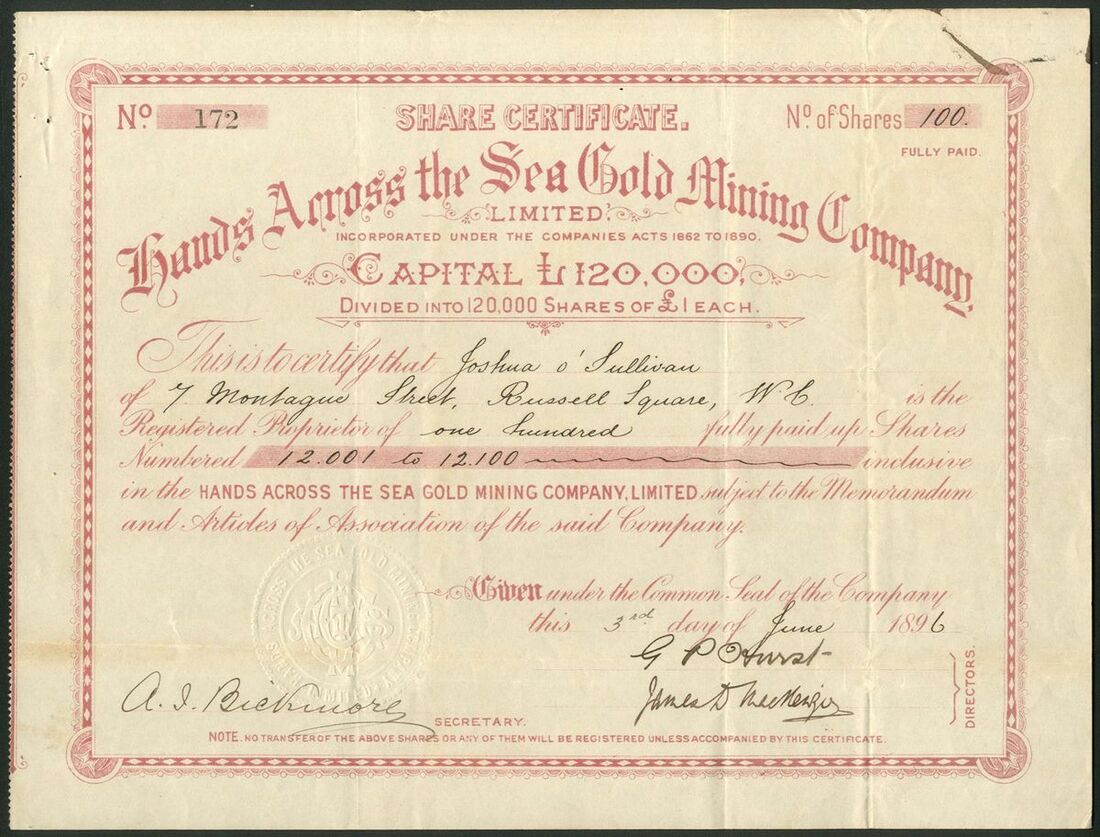 No. 172
SHARE CERTIFICATE.
No. of Shares 100.
FULLY PAID.
Hands Across the Sea Gold Mining Company,
LIMITED.
INCORPORATED UNDER THE COMPANIES ACTS 1862 TO 1890.
CAPITAL £120,000,
DIVIDED INTO 120,000 SHARES OF £1 EACH.
This is to certify that Joshua O'Sullivan
of 7, Montague Street, Russell Square, W.C. is the
Registered Proprietor of one hundred fully paid up Shares
Numbered 12.001 to 12.100 inclusive
in the HANDS ACROSS THE SEA GOLD MINING COMPANY, LIMITED subject to the Memorandum
and Articles of Association of the said Company.
Given under the Common Seal of the Company
this 3rd day of June 1896
James D MacKenzie
DIRECTORS.
A. J. Bickmore
SECRETARY.
NOTE. NO TRANSFER OF THE ABOVE SHARES OR ANY OF THEM WILL BE REGISTERED UNLESS ACCOMPANIED BY THIS CERTIFICATE.